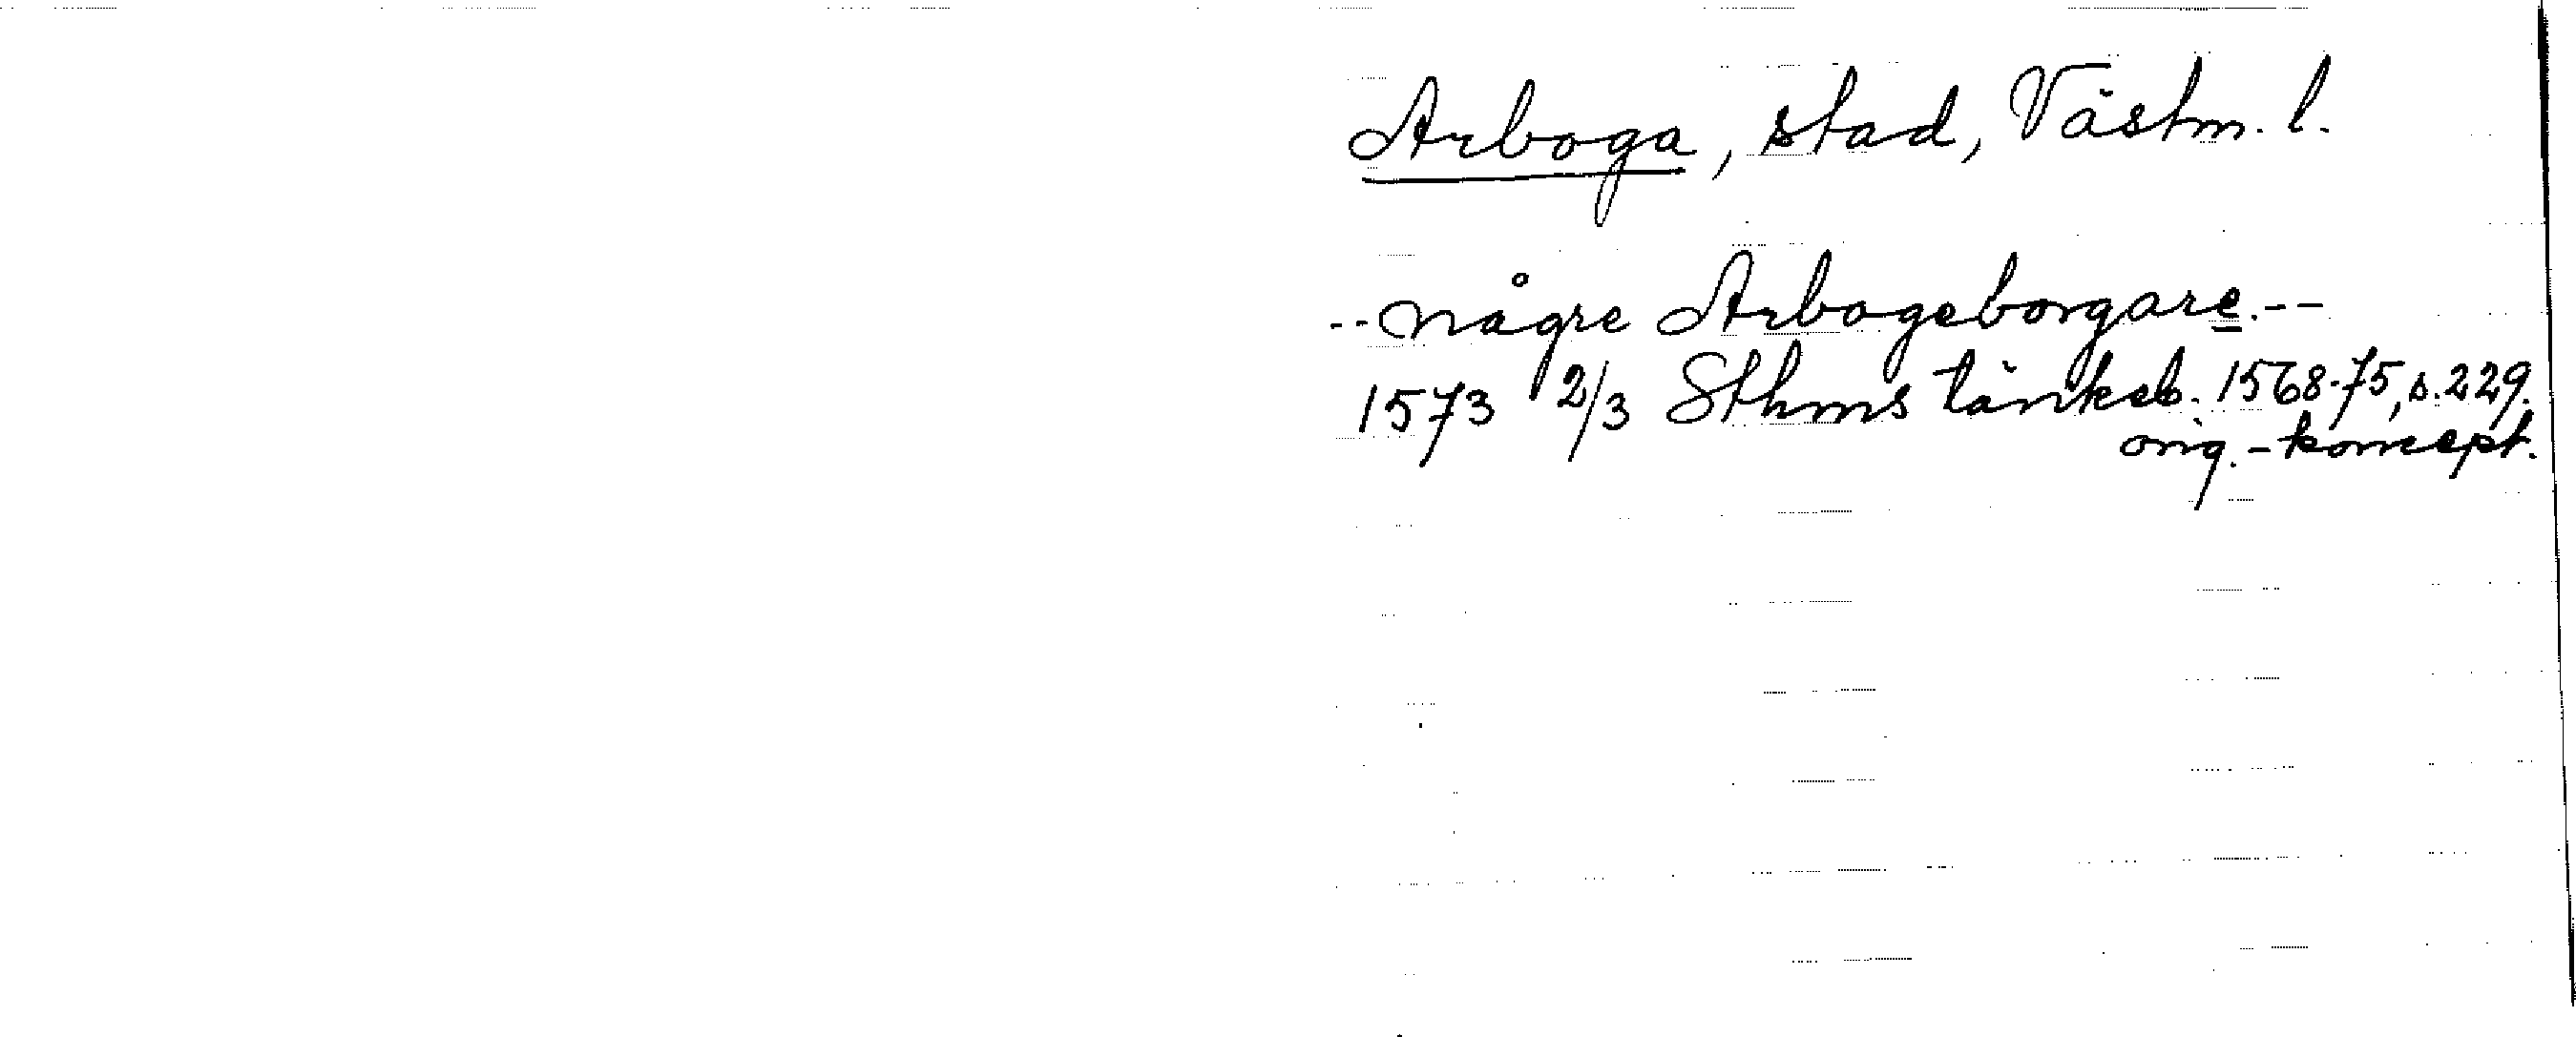 Arboga, stad, Västm. l.
-- någre Arbogeborgare. --
1573 2/3 Sthms tänkeb. 1568-75, s. 229.
orig.-koncept.